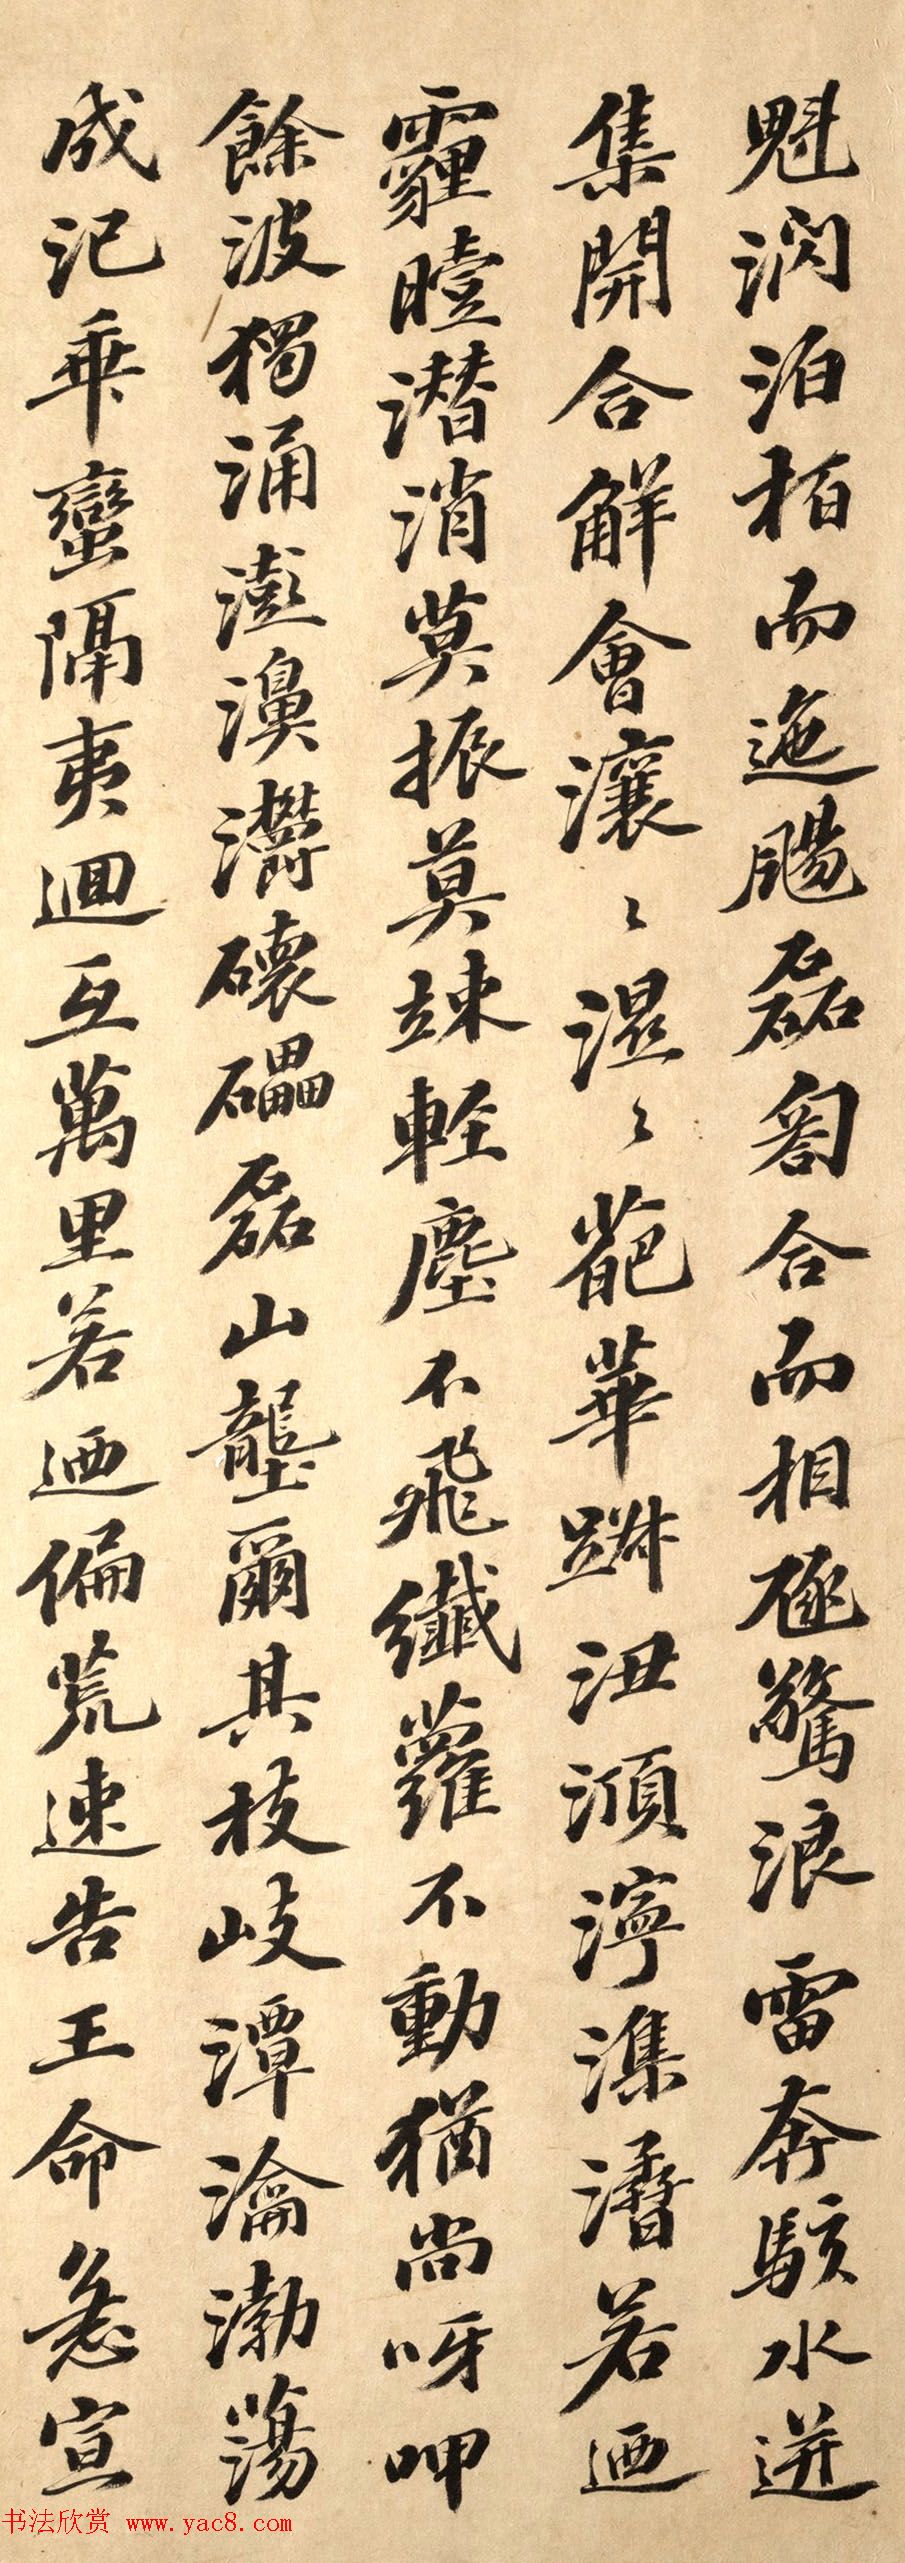 魁㴸泊柏而迤颺磊匒合而相豗驚浪雷奔駭水迸
集開合解會瀼〻濕〻葩華踧沑澒濘潗㵫若迺
霾曀潛消莫振莫竦輕塵不飛纖蘿不動猶尚呀呷
餘波獨涌澎濞灪碨礧磊山壟爾其枝岐潭瀹渤蕩
成汜乖蠻隔夷迴互萬里若迺偏荒速告王命急宣
书法欣赏 www.yac8.com